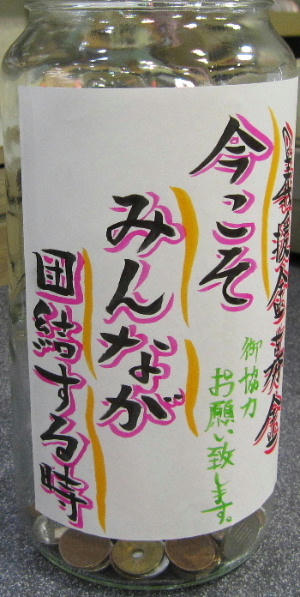 義援金募金
今こそ
みんなが
団結する時
御協力
お願い致します。